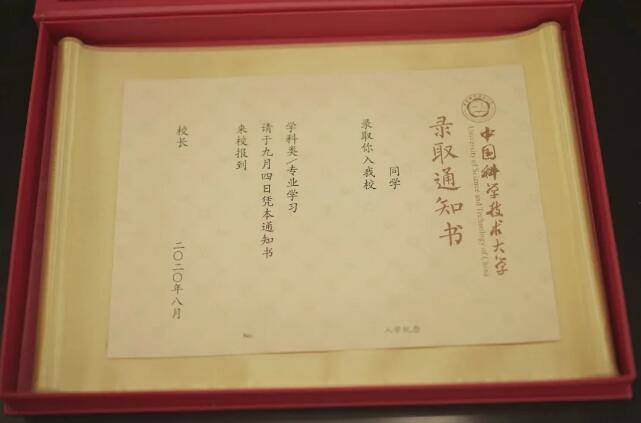 中国科学技术大学
University of Science and Technology of China
录取通知书
同学
录取你入我校
学科类(专业学习
请于九月四日凭本通知书
来校报到
校长
二〇二〇年八月
No.
入学纪念